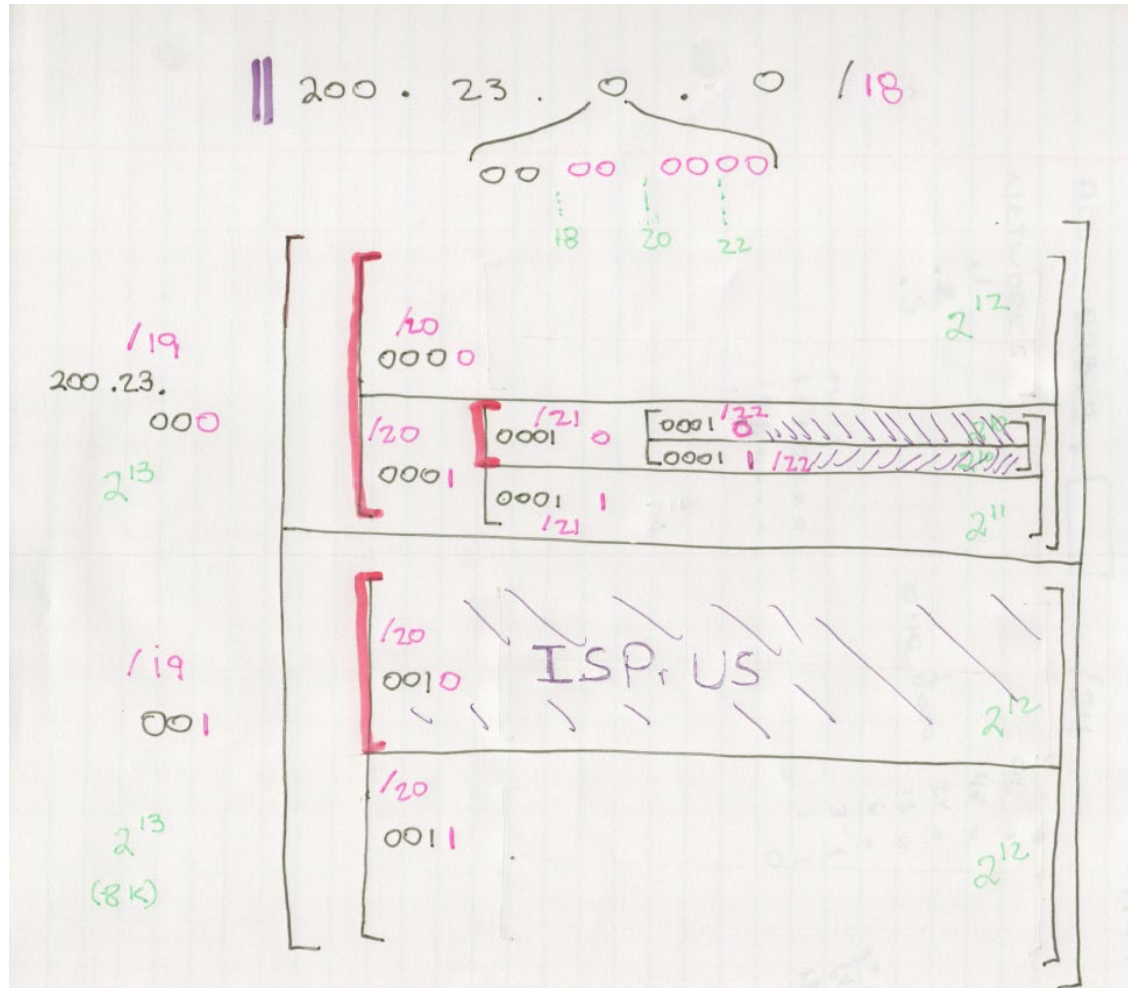 200 . 23 . 0 . 0 /18
00 00 0000
18 20 22
/19
200.23.
000
2^13
/20
0000 0
2^12
/20
0001
/21
0001 0
0001 /22
0
2^10
0001 1 /22
2^10
0001 1
/21
2^11
/19
001
2^13
(8K)
/20
0010
ISP. US
2^12
/20
0011
2^12